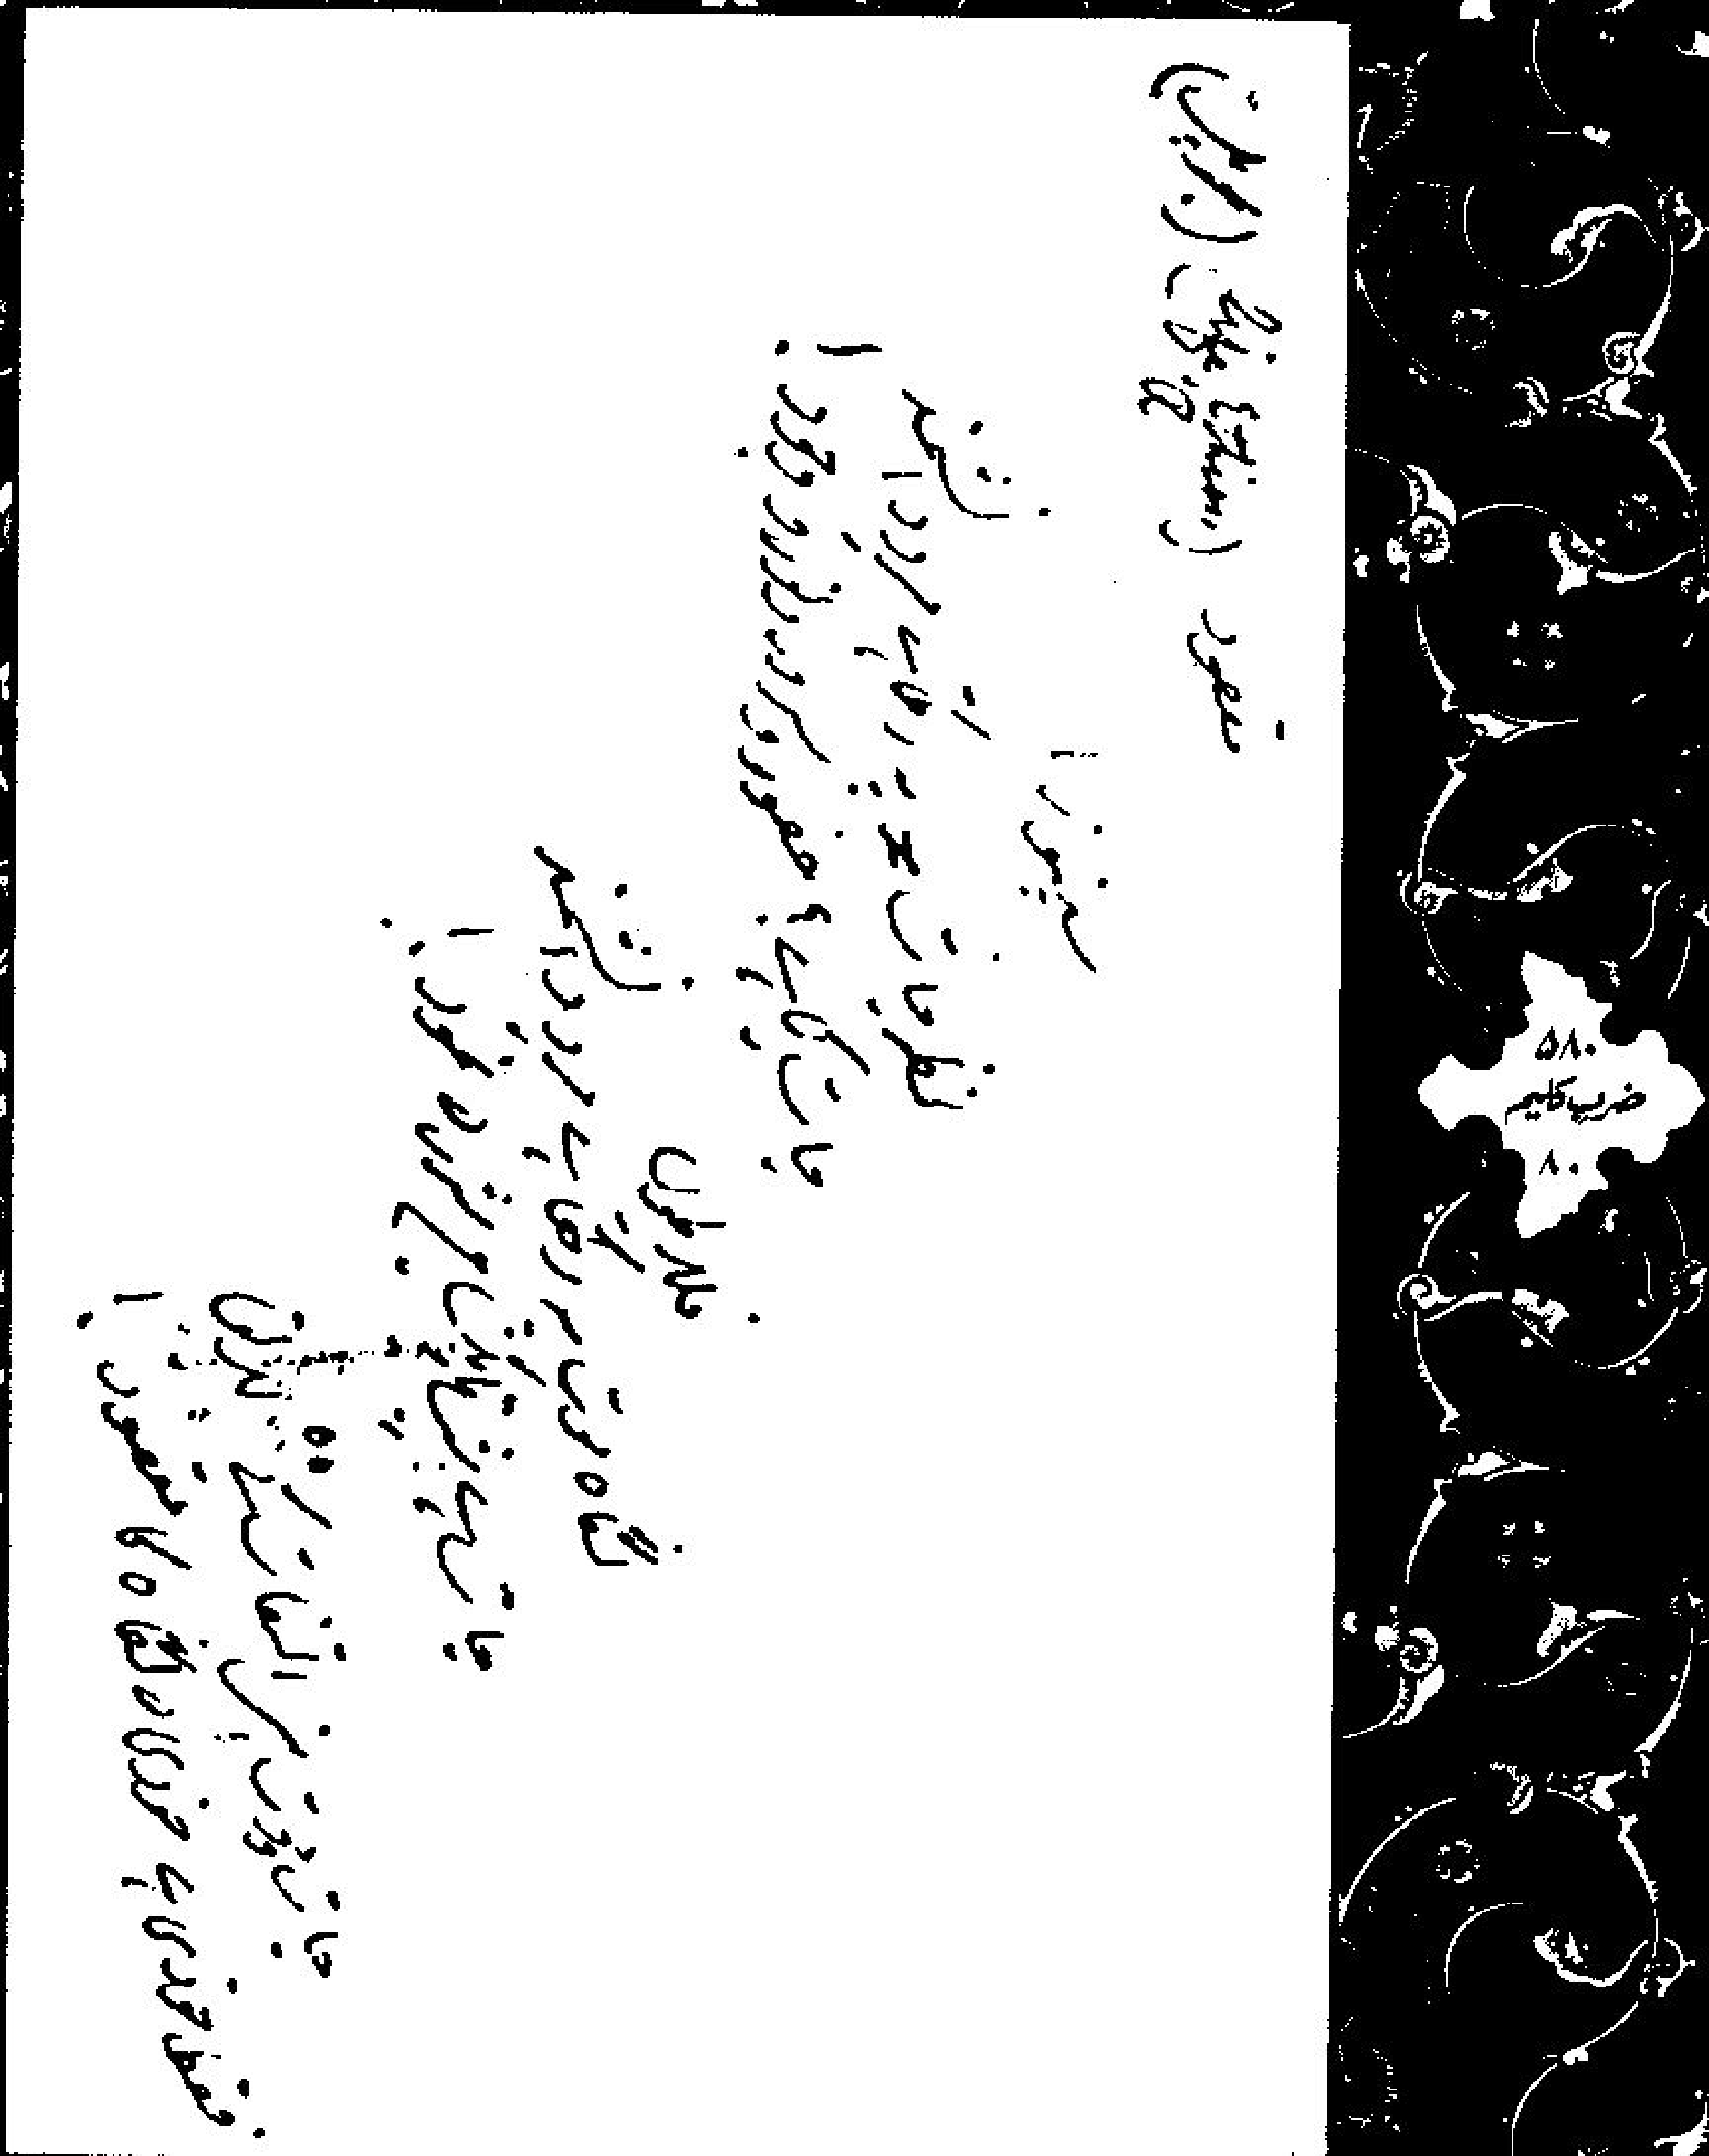 ۵۸۰
ضرب کلیم
۸۰
مقصود
سپینوزا
نظر حیات پہ رکھتا ہے مرد دانشمند
حیات کیا ہے؟ حضور و سرور و نور و وجود!
فلاطوں
نگاہ موت پہ رکھتا ہے مرد دانشمند
حیات ہے شب تاریک میں شرر کی نمود!
حیات و موت نہیں التفات کے لائق
فقط خودی ہے خودی کی نگاہ کا مقصود!